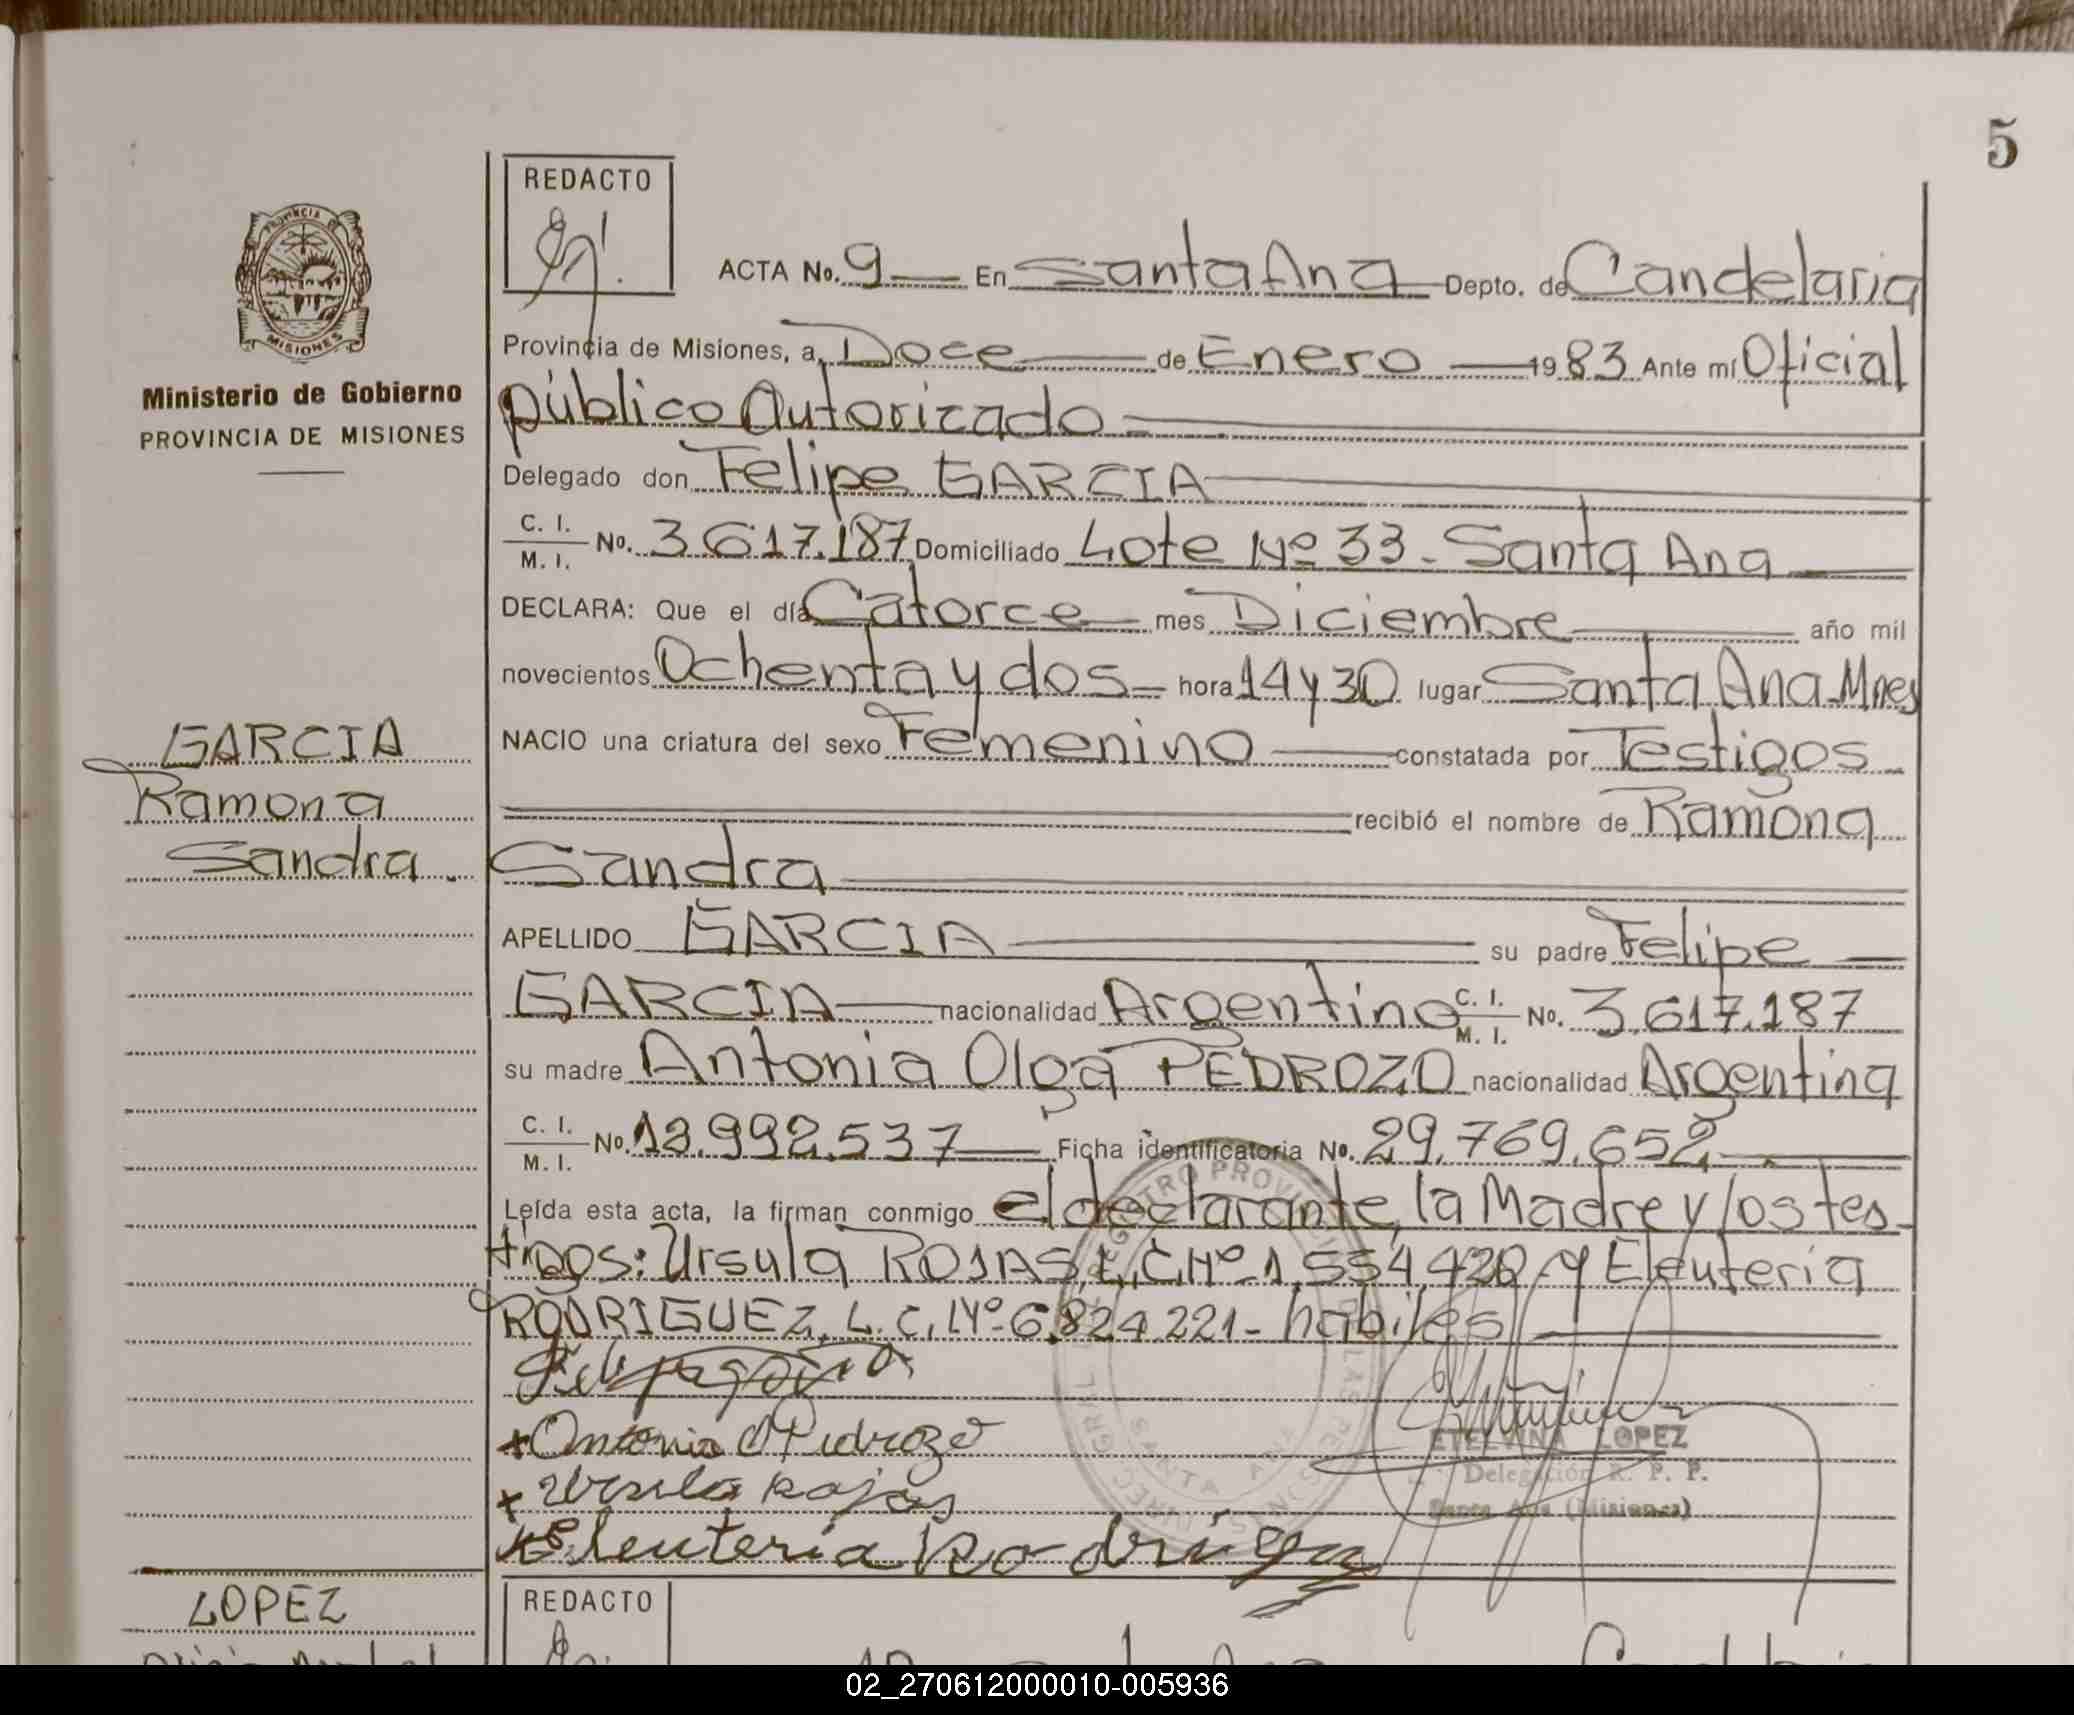 5
REDACTO
ACTA No. 9 En Santa Ana Depto. de Candelaria
Provincia de Misiones, a Doce de Enero 1983 Ante mí Oficial
público Autorizado
Delegado don Felipe GARCIA
C. I.
M. I. No. 3.617.187 Domiciliado Lote Nº 33 - Santa Ana
DECLARA: Que el día Catorce mes Diciembre año mil
novecientos Ochenta y dos hora 14 y 30 lugar Santa Ana - Mnes
NACIO una criatura del sexo Femenino constatada por Testigos
recibió el nombre de Ramona
Sandra
APELLIDO GARCIA su padre Felipe
GARCIA nacionalidad Argentino C. I. M. I. No. 3.617.187
su madre Antonia Olga PEDROZO nacionalidad Argentina
C. I.
M. I. No. 13.992.537 Ficha identificatoria No. 29.769.652
Leída esta acta, la firman conmigo el declarante, la Madre y los tes-
tigos: Ursula ROJAS, L.C. Nº 1.554.420 - y Eleuteria
RODRIGUEZ, L.C. Nº 6.824.221 - habiles
Antonia O Pedrozo
Ursula Rojas
Eleuteria Rodriguez
ETELVINA LOPEZ
Delegación R. P. P.
Santa Ana (Misiones)
PROVINCIA DE
MISIONES
Ministerio de Gobierno
PROVINCIA DE MISIONES
GARCIA
Ramona
Sandra.
LOPEZ
REDACTO
02_270612000010-005936